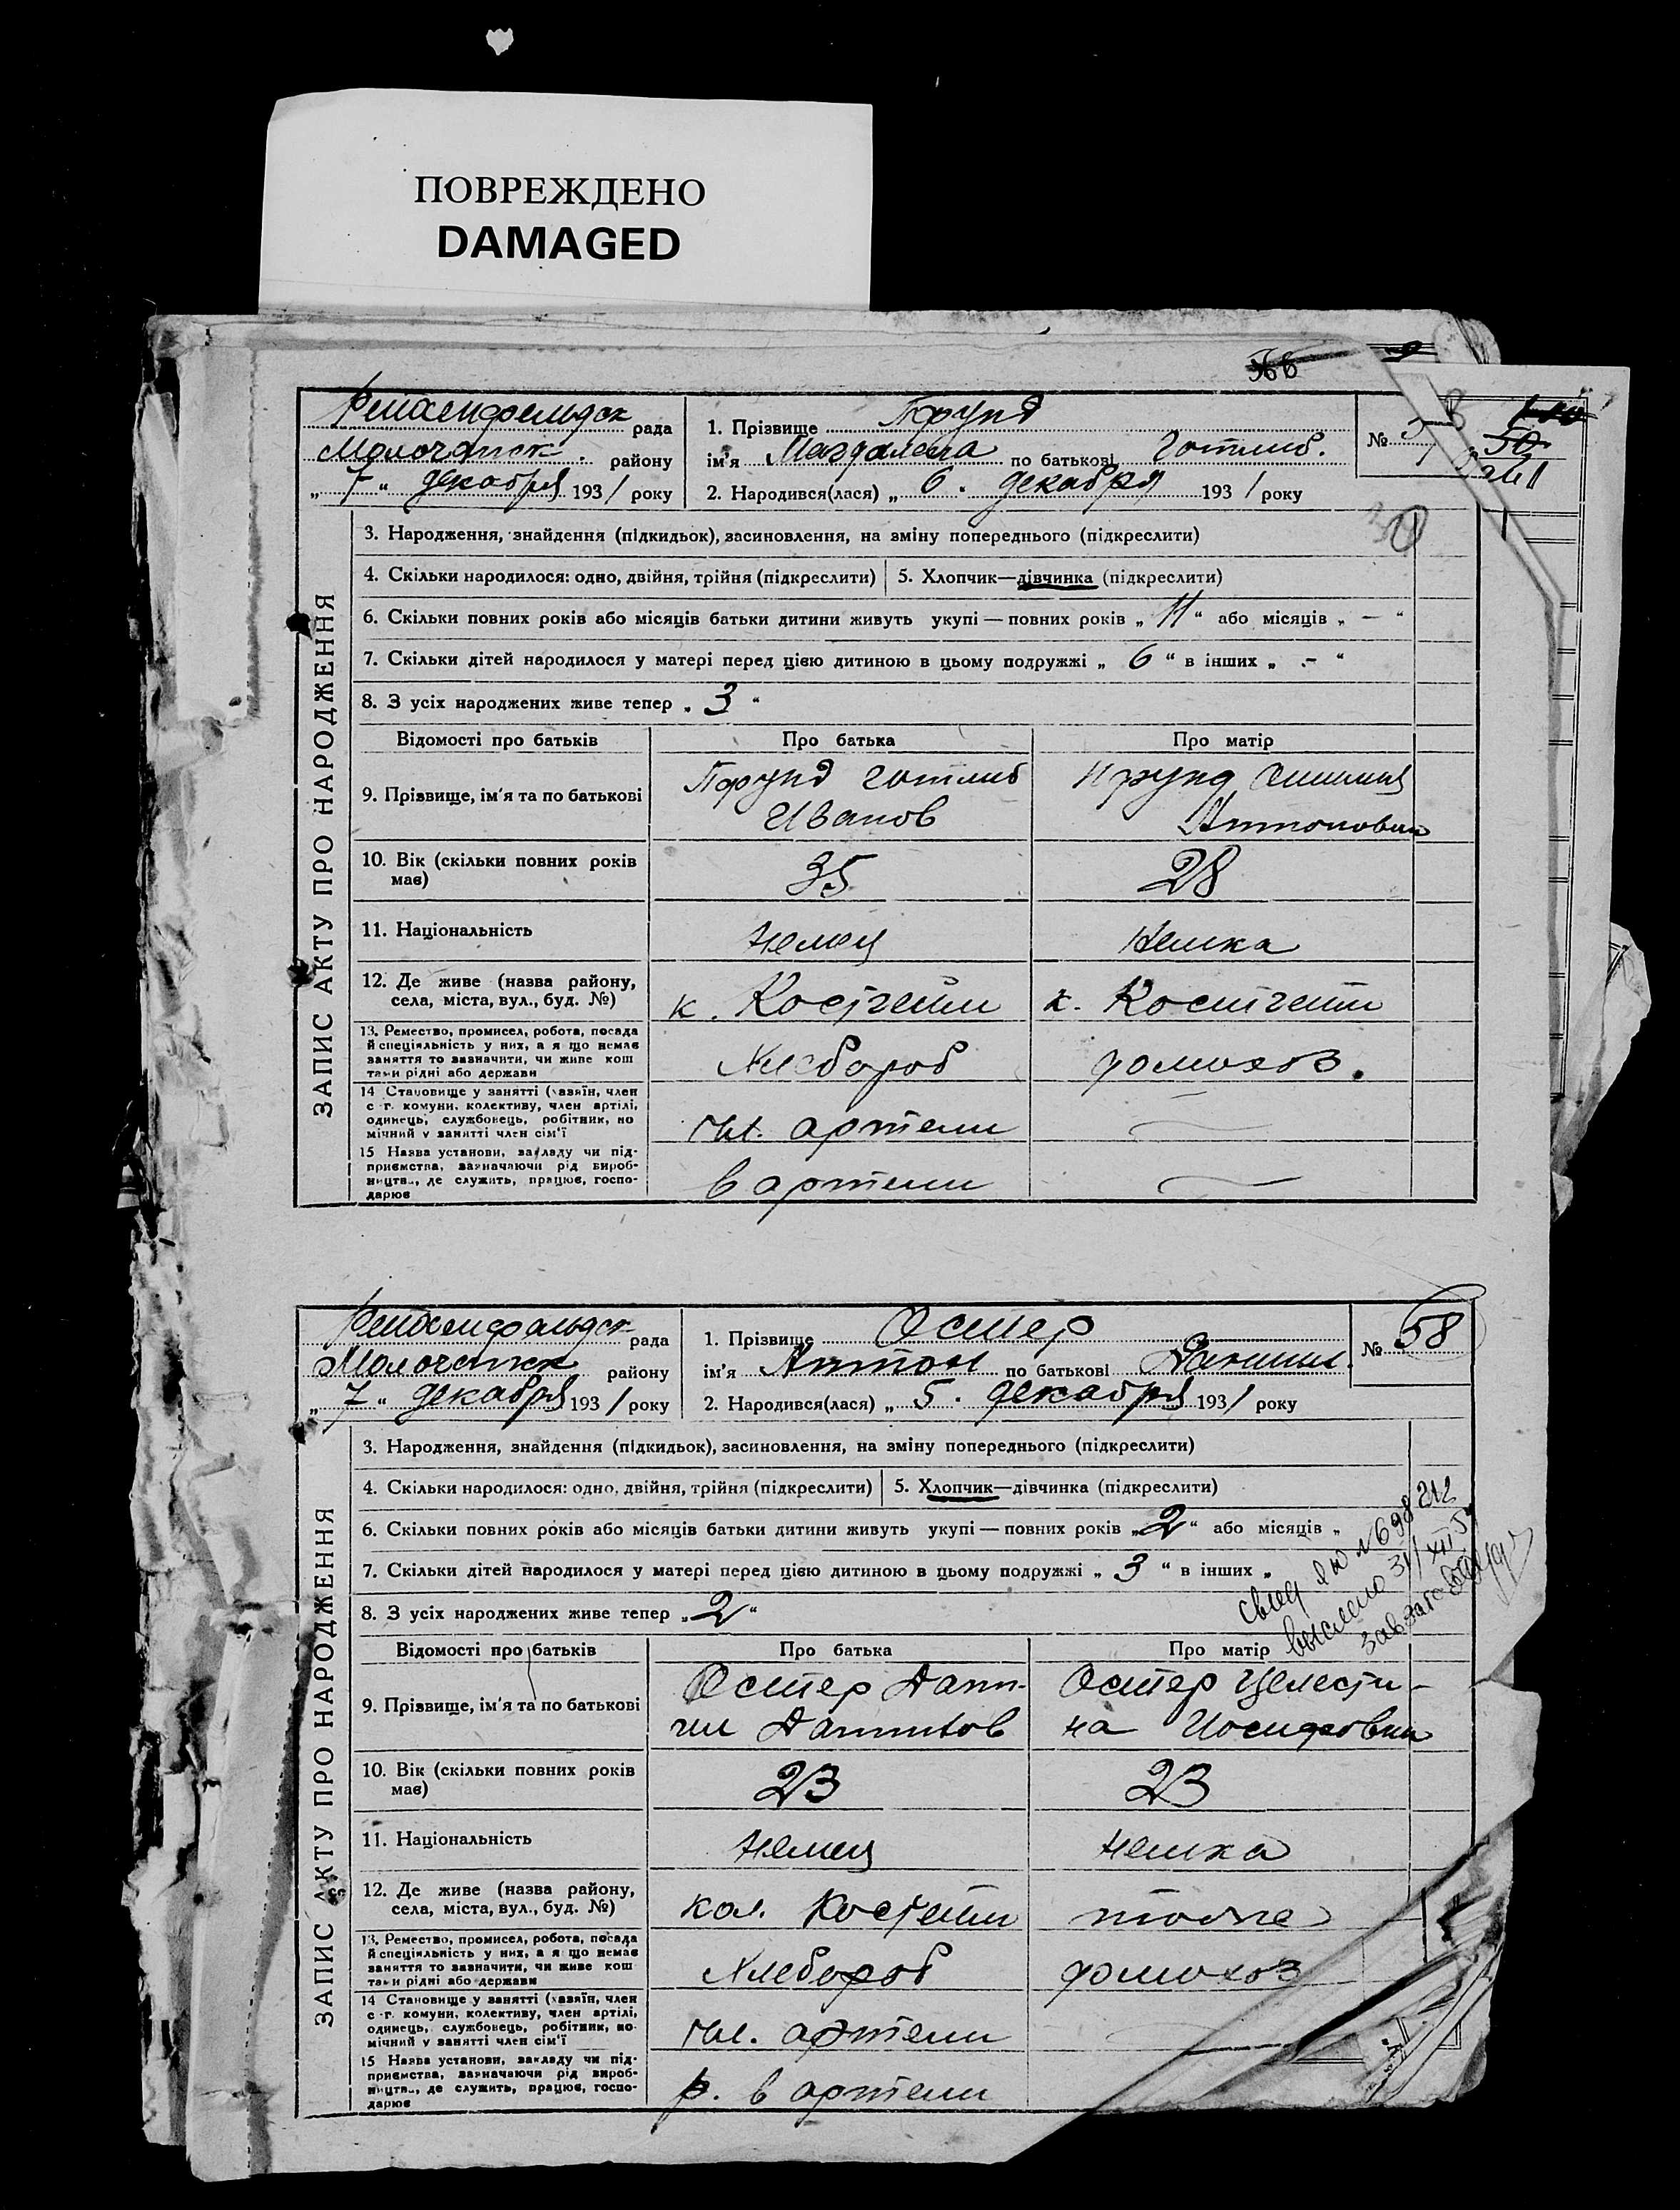 ПОВРЕЖДЕНО
DAMAGED
Рейхенфельдск рада
Молочанск. району
„ 7 “ декабря 1931 року
1. Прізвище Пфунд
ім'я Магдалена по батькові Готлиб.
2. Народився(лася) „ 6 “ декабря 1931 року
№
50
ЗАПИС АКТУ ПРО НАРОДЖЕННЯ
3. Народження, знайдення (підкидьок), засиновлення, на зміну попереднього (підкреслити)
4. Скільки народилося: одно, двійня, трійня (підкреслити) 5. Хлопчик—дівчинка (підкреслити)
6. Скільки повних років або місяців батьки дитини живуть укупі — повних років „ 11 “ або місяців „ — “
7. Скільки дітей народилося у матері перед цією дитиною в цьому подружжі „ 6 “ в інших „ - “
8. З усіх народжених живе тепер „ 3 “
Відомості про батьків Про батька Про матір
9. Прізвище, ім'я та по батькові
Пфунд Готлиб
Иванов
Пфунд
Антоновна
10. Вік (скільки повних років має) 35 28
11. Національність Немец Немка
12. Де живе (назва району, села, міста, вул., буд. №) к. Костгейм к. Костгейм
13. Ремество, промисел, робота, посада
й спеціяльність у них, а я що немає
заняття то зазначити, чи живе кош
тами рідні або держави
Хлебороб домохоз.
14 Становище у занятті (хазяїн, член
с.-г. комуни, колективу, член артілі,
одинець, службовець, робітник, по
мічний у занятті член сім'ї
чл. артели —
15 Назва установи, закладу чи під-
приємства, зазначаючи рід вироб-
ництва, де служить, працює, госпо-
дарює
в артели —
Рейхенфельдск рада
Молочанск району
„ 7 “ декабря 1931 року
1. Прізвище Остер
ім'я Антон по батькові Данилл.
2. Народився(лася) „ 5 “ декабря 1931 року
№ 58
ЗАПИС АКТУ ПРО НАРОДЖЕННЯ
3. Народження, знайдення (підкидьок), засиновлення, на зміну попереднього (підкреслити)
4. Скільки народилося: одно, двійня, трійня (підкреслити) 5. Хлопчик—дівчинка (підкреслити)
6. Скільки повних років або місяців батьки дитини живуть укупі — повних років „ 2 “ або місяців „
7. Скільки дітей народилося у матері перед цією дитиною в цьому подружжі „ 3 “ в інших „
8. З усіх народжених живе тепер „ 2 “
выслано 31/XII
Відомості про батьків Про батька Про матір
9. Прізвище, ім'я та по батькові
Остер Дани-
ил Даниилов
Остер Целести-
на Иосифовна
10. Вік (скільки повних років має) 23 23
11. Національність Немец Немка
12. Де живе (назва району, села, міста, вул., буд. №) кол. Костгейм тоже
13. Ремество, промисел, робота, посада
й спеціяльність у них, а я що немає
заняття то зазначити, чи живе кош
тами рідні або держави
Хлебороб домохоз
14 Становище у занятті (хазяїн, член
с.-г. комуни, колективу, член артілі,
одинець, службовець, робітник, по-
мічний у занятті член сім'ї
чл. артели
15 Назва установи, закладу чи під-
приємства, зазначаючи рід вироб-
ництва, де служить, працює, госпо-
дарює
р. в артели